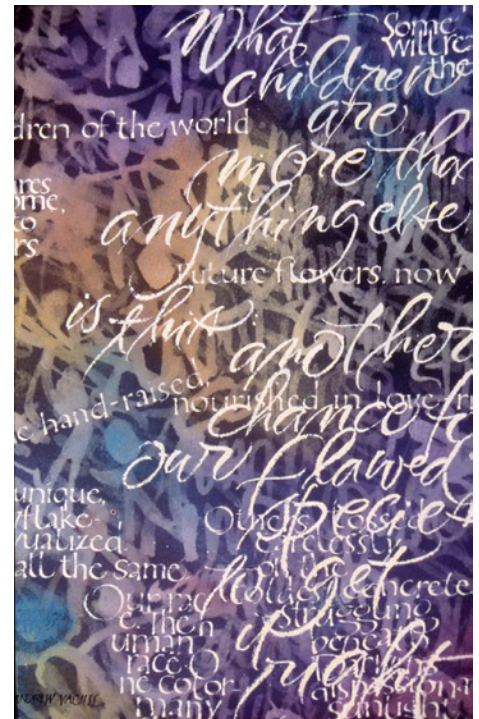 What
children
are
more tha
anything else
is this
another
chance fo
our flawed
species
to get
it right
Some
will re
the
dren of the world
ome,
to
rs
Future flowers, now
hand-raised,
nourished in love
unique,
flake
ualized
all the same
Others tossed
carelessly
on the
cold concrete
struggling
beneath
Our rac
e, then
uman
race. O
ne color
many
sunlight